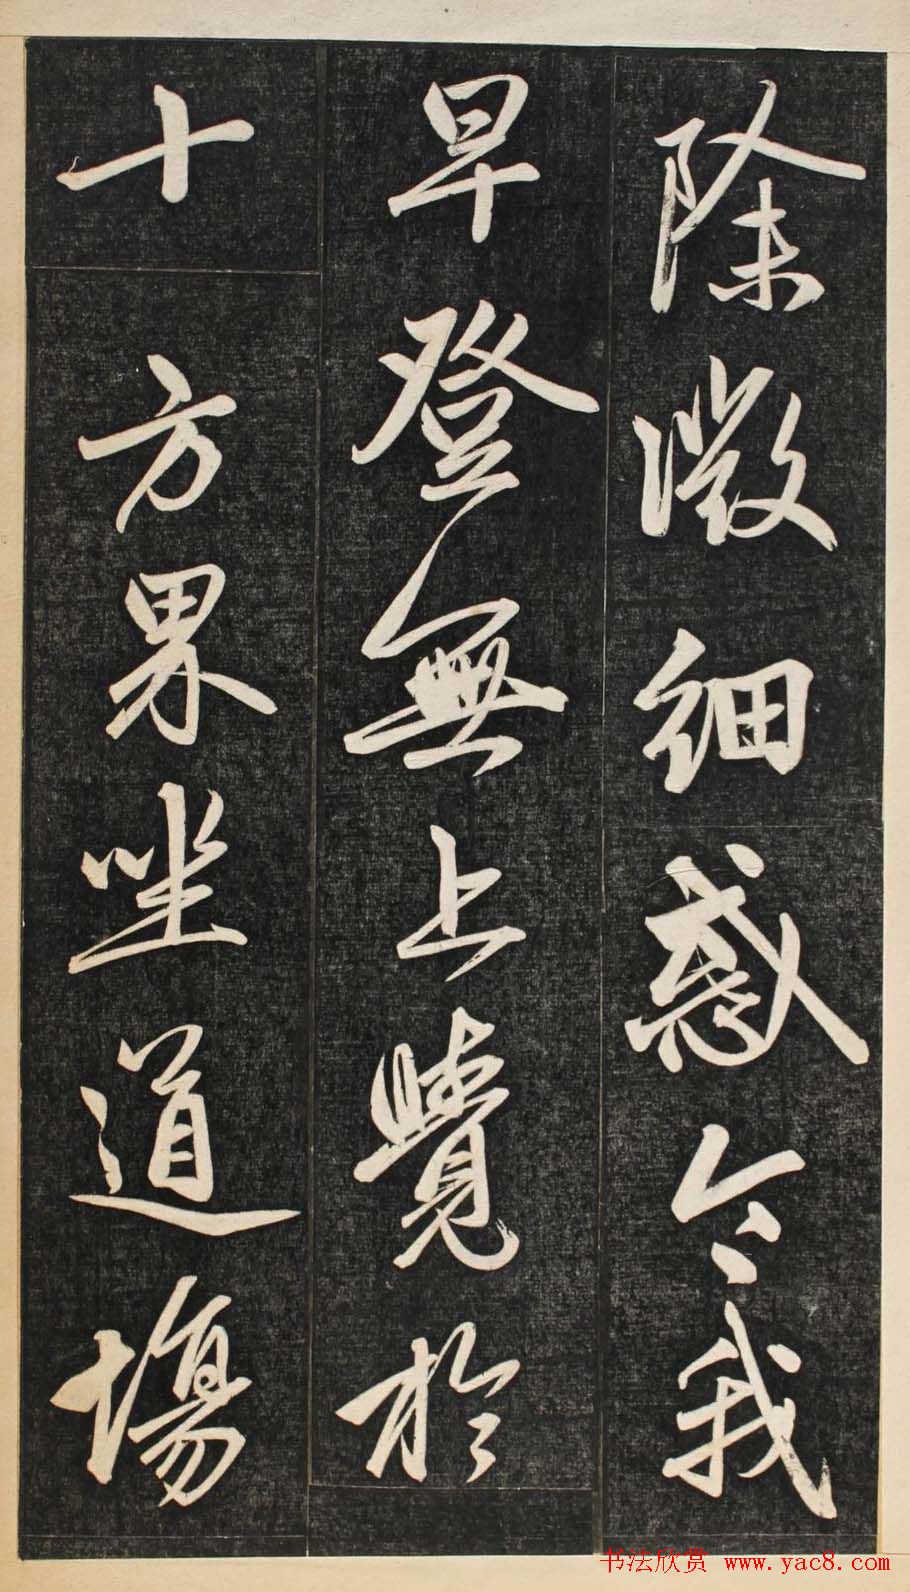 除微细惑令我
早登無上覺於
十方界坐道場
书法欣赏 www.yac8.com